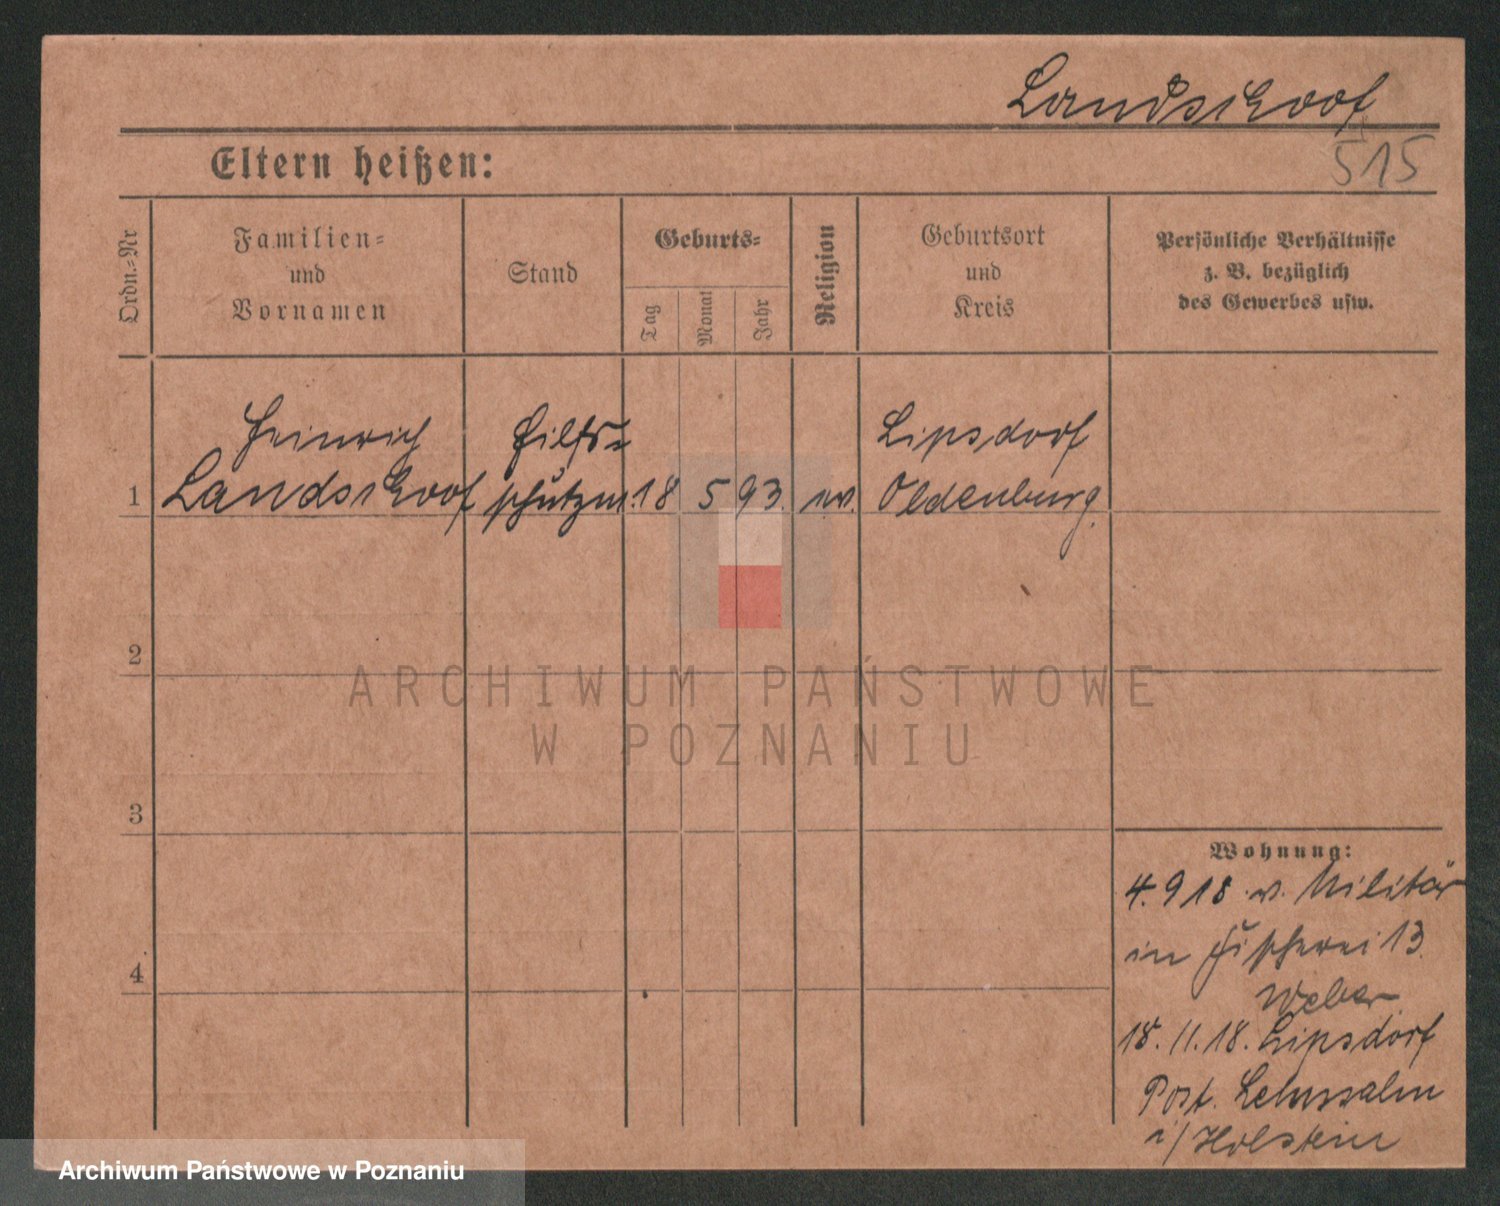 Landschoof
515
Eltern heißen:
Ordn.-Nr
Familien-
und
Vornamen
Stand
Geburts-
Tag
Monat
Jahr
Religion
Geburtsort
und
Kreis
Persönliche Verhältnisse
z. B. bezüglich
des Gewerbes usw.
1
Heinrich
Landschoof
Hilfs-
schutzm.
18
5
93.
ev.
Lipsdorf
Oldenburg.
2
3
4
Wohnung:
4.9 18 v. Militär
in Fischerei 13.
Weber
18. 11. 18. Lipsdorf
Post. Lehnsahn
i/Holstein
ARCHIWUM PAŃSTWOWE
W POZNANIU
Archiwum Państwowe w Poznaniu